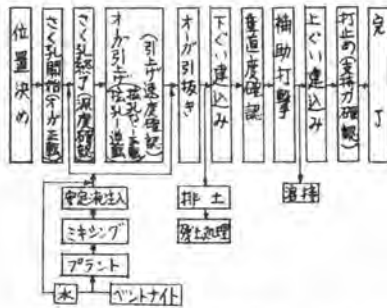 位置決め
さく孔開始(オーガ正転)
さく孔終了(深度確認)
オーガ引上げ
(引上げ速度確認)
オーガ引抜き
下ぐい建込み
垂直度確認
補助打撃
上ぐい建込み
打止め(支持力確認)
完了
安定液注入
ミキシング
プラント
水
ベントナイト
排土
残土処理
溶接